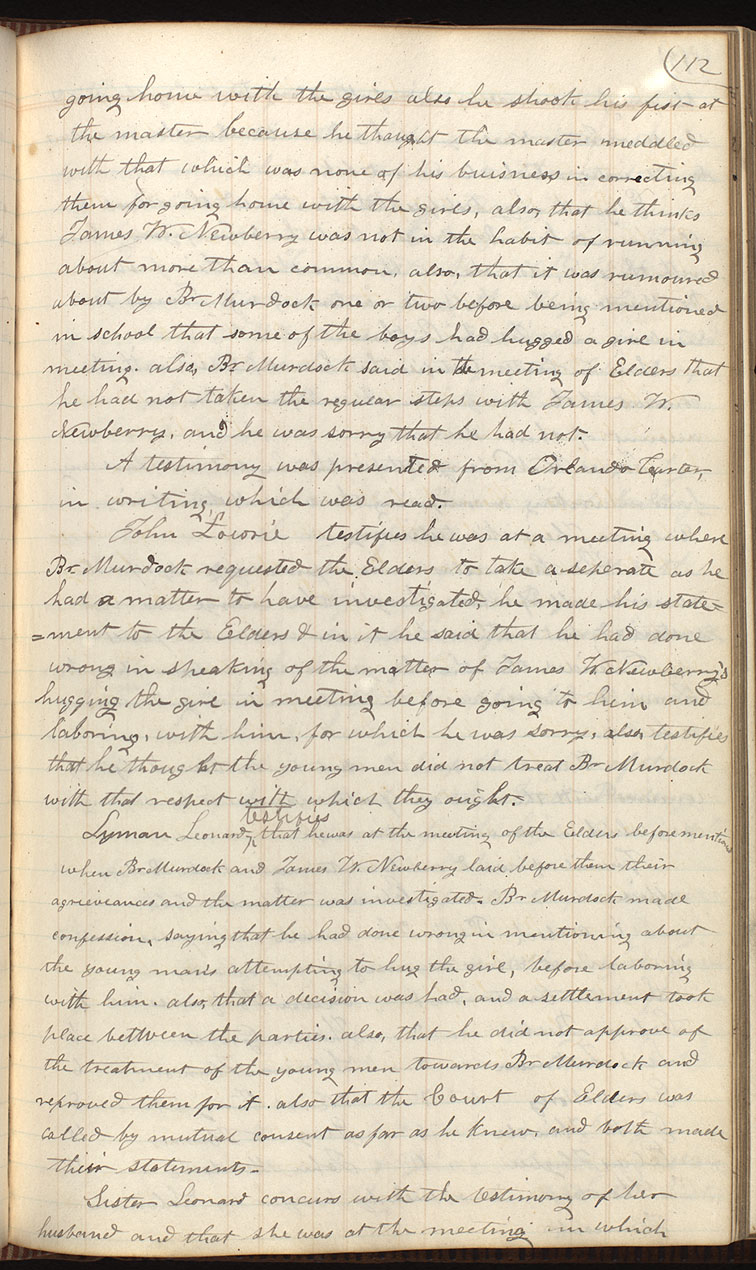 112
going home with the girls also he shook his fist at
the master because he thought the master meddled
with that which was none of his buisness in correcting
them for going home with the girls, also, that he thinks
James W. Newberry was not in the habit of running
about more than common, also, that it was rumoured
about by Br Murdock one or two before being mentioned
in school that some of the boys had hugged a girl in
meeting. also, Br Murdock said in the meeting of Elders that
he had not taken the regular steps with James W.
Newberry, and he was sorry that he had not.
A testimony was presented from Orlando Carter,
in writing which was read.
John Lowrie testifies he was at a meeting where
Br. Murdock requested the Elders to take a seperate as he
had a matter to have investigated, he made his state-
=ment to the Elders & in it he said that he had done
wrong in speaking of the matter of James W. Newberry's
hugging the girl in meeting before going to him and
laboring, with him, for which he was sorry, also, testifies
that he thought the young men did not treat Br Murdock
with that respect with which they ought.
testifies
Lyman Leonard, that he was at the meeting of the Elders before mentioned
when Br Murdock and James W. Newberry laid before them their
agrieviances and the matter was investigated. Br Murdock made
confession, saying that he had done wrong in mentioning about
the young man's attempting to hug the girl, before laboring
with him. also, that a decision was had, and a settlement took
place bettween the parties. also, that he did not approve of
the treatment of the young men towards Br Murdock and
reproved them for it. also that the Court of Elders was
called by mutual consent as far as he knew, and both made
their statements-
Sister Leonard concurs with the testimony of her
husband and that she was at the meeting in which